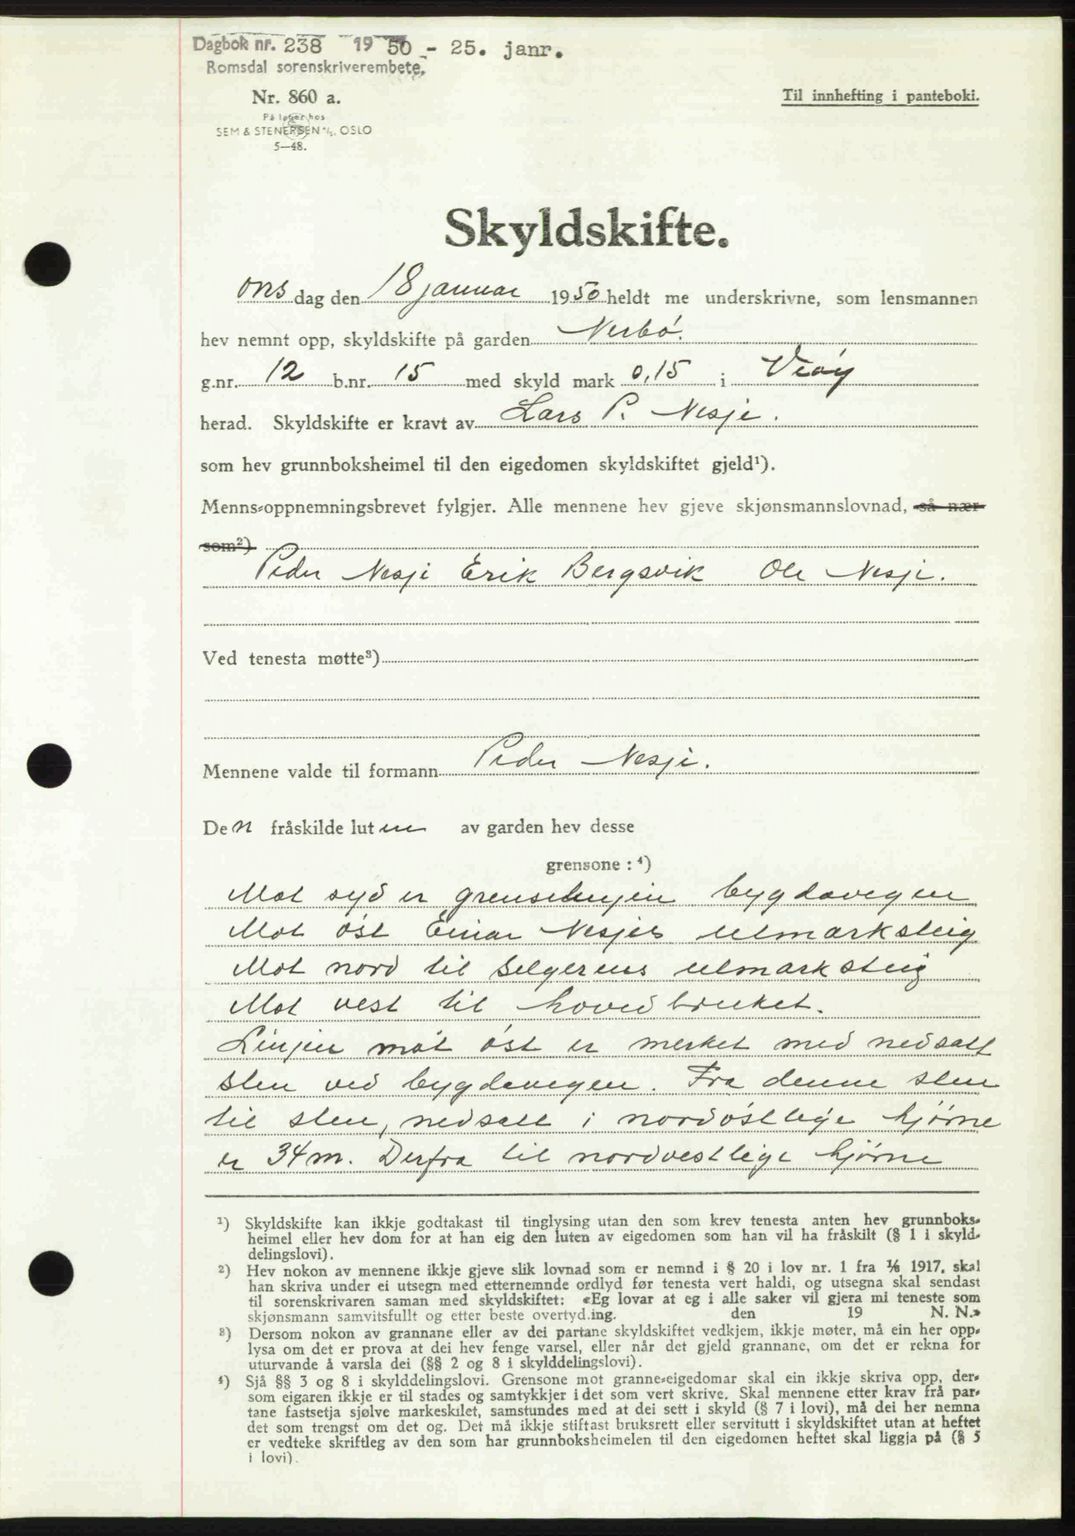 Dagbok nr. 238 1950 - 25. janr.
Romsdal sorenskriverembete,
Nr. 860 a.
Til innhefting i panteboki.
På lager hos
SEM & STENERSEN A/S, OSLO
5—48.
Skyldskifte.
ons dag den 18 januar 1950 heldt me underskrivne, som lensmannen
hev nemnt opp, skyldskifte på garden Nerbö.
g.nr. 12 b.nr. 15 med skyld mark 0,15 i Veöy
herad. Skyldskifte er kravt av Lars P. Nesje.
som hev grunnboksheimel til den eigedomen skyldskiftet gjeld¹).
Menns-oppnemningsbrevet fylgjer. Alle mennene hev gjeve skjønsmannslovnad, så nær
som²)
Peder Nesje Erik Bergsvik Ole Nesje.
Ved tenesta møtte³)
Mennene valde til formann Peder Nesje.
Den fråskilde luten av garden hev desse
grensone : ⁴)
Mot syd er grenselinjen bygdavegen
Mot öst Einar Nesjes utmarksteig
Mot nord til selgerens utmarksteig
Mot vest til hovedbruket.
Linjen mot öst er merket med nedsatt
sten ved bygdavegen. Fra denne sten
til sten, nedsatt i nordöstlige hjörne
er 34 m. Derfra til nordvestlige hjörne
¹) Skyldskifte kan ikkje godtakast til tinglysing utan den som krev tenesta anten hev grunnboks-
heimel eller hev dom for at han eig den luten av eigedomen som han vil ha fråskilt (§ 1 i skyld-
delingslovi).
²) Hev nokon av mennene ikkje gjeve slik lovnad som er nemnd i § 20 i lov nr. 1 fra 1/6 1917, skal
han skriva under ei utsegn med etternemnde ordlyd før tenesta vert haldi, og utsegna skal sendast
til sorenskrivaren saman med skyldskiftet: «Eg lovar at eg i alle saker vil gjera mi teneste som
skjønsmann samvitsfullt og etter beste overtyding. den 19 N. N.»
³) Dersom nokon av grannane eller av dei partane skyldskiftet vedkjem, ikkje møter, må ein her opp-
lysa om det er prova at dei hev fenge varsel, eller når det gjeld grannane, om det er rekna for
uturvande å varsla dei (§§ 2 og 8 i skylddelingslovi).
⁴) Sjå §§ 3 og 8 i skylddelingslovi. Grensone mot granne-eigedomar skal ein ikkje skriva opp, der-
som eigaren ikkje er til stades og samtykkjer i det som vert skrive. Skal mennene etter krav frå par-
tane fastsetja sjølve markeskilet, samstundes med at dei sett i skyld (§ 7 i lovi), må dei her nemna
det som trengst om det og. Det må ikkje stiftast bruksrett eller servitutt i skyldskiftet utan at heftet
er vedteke skriftleg av den som har grunnboksheimelen til den eigedomen heftet skal liggja på (§ 5
i lovi).